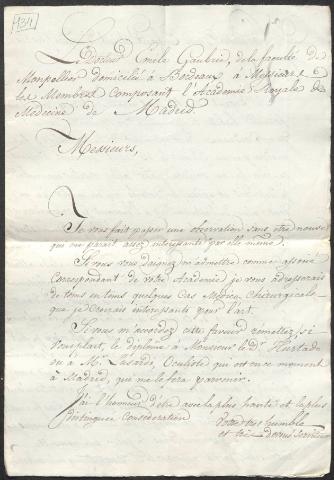 934
Le Docteur Emile Gaubric, de la faculté de
Monpellier domicilié à Bordeaux à Messieurs
les Membres Composant l'Academie Royale de
Médecine de Madrid.
Messieurs,
Je vous fait passer une observation sans être neuve
qui me parait assez interessante par elle même.
Si vous vous daignez m'admettre comme associé
Correspondant de votre Academie je vous adresserais
de tems en tems quelques Cas Médico Chirurgicale
que je Croirais interessants pour l'art.
Si vous m'accordez cette faveur remettez s'il
vous plait, le diplome à Monsieur le Dr. Hurtado
ou à Mr. Lusardi, Oculiste qui est en ce moment
à Madrid, qui me le fera parvenir.
J'ai l'honneur d'être avec la plus haute et la plus
distinguée Considération
Votre très humble
et très devoué Serviteur